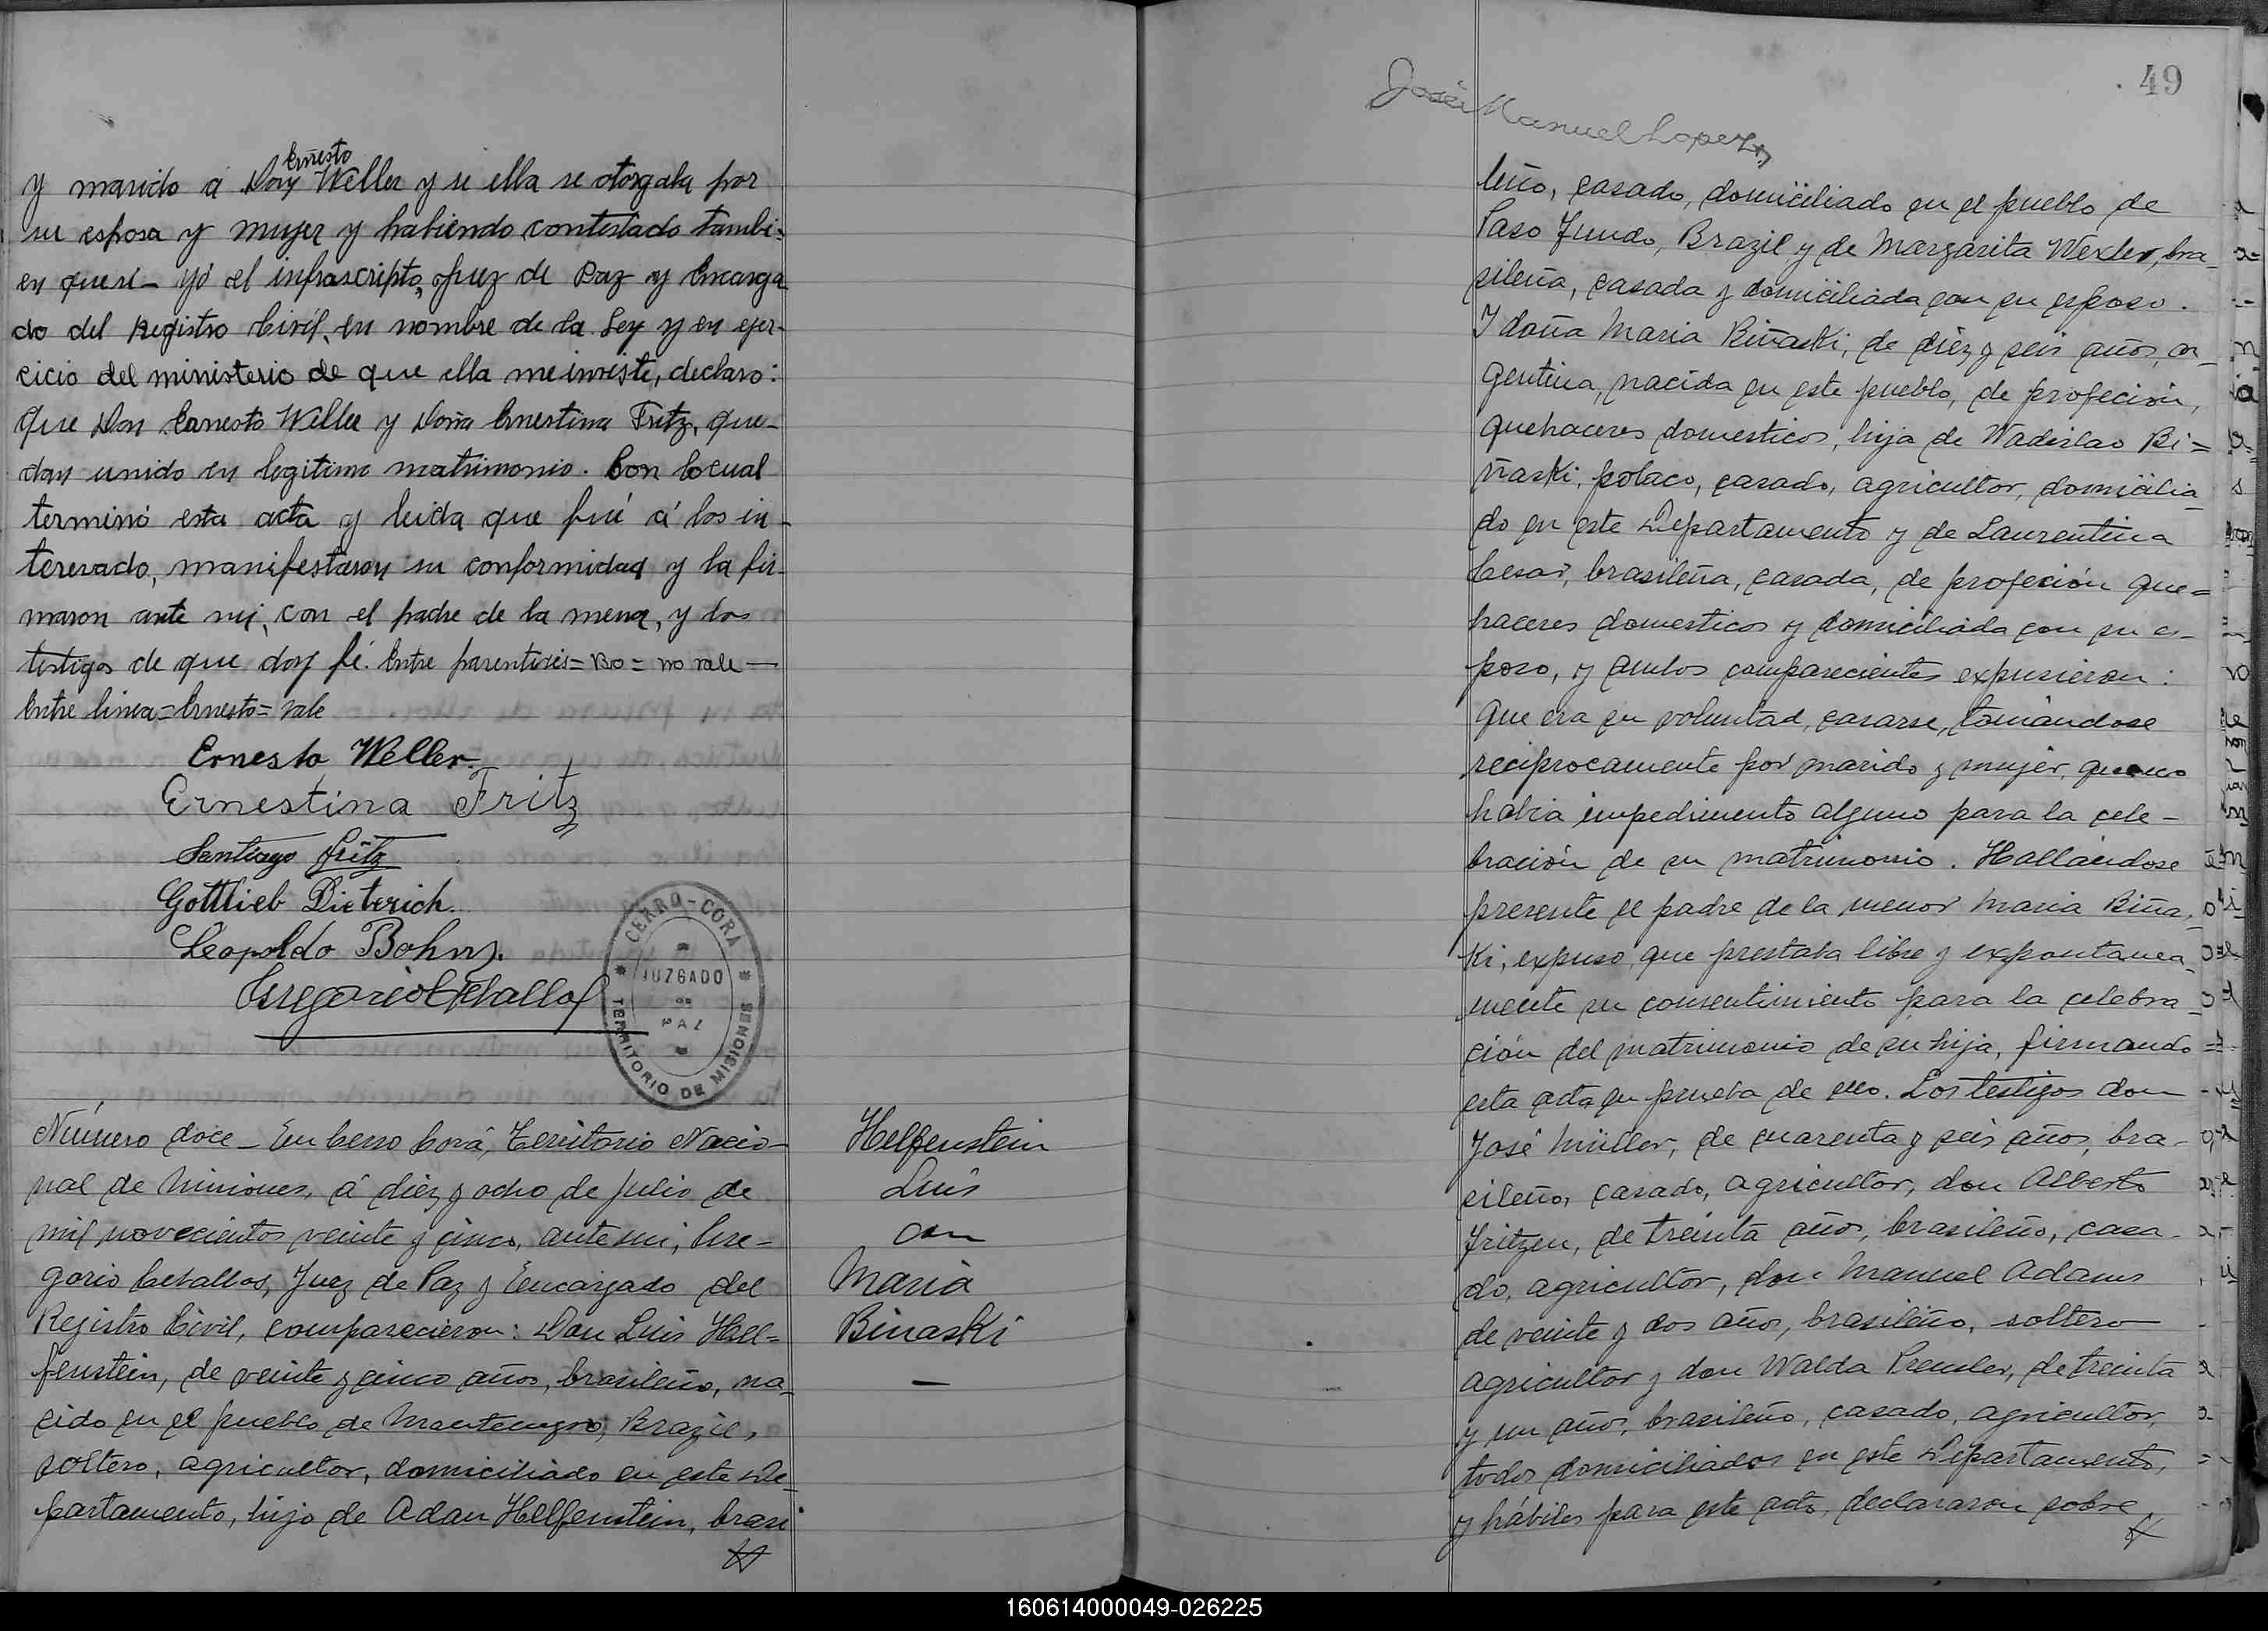 y marido a Don Ernesto Weller y si ella se otorgaba por
su esposa y mujer y habiendo contestado tambi-
en que si - yó el infrascripto, Juez de Paz y Encarga
do del Registro Civil, en nombre de la Ley y en ejer-
cicio del ministerio de que ella me inviste, declaro:
Que Don Ernesto Weller y Doña Ernestina Fritz, que-
dan unido en legitimo matrimonio. Con lo cual
terminó esta acta y leida que fué á los in-
teresado, manifestaron su conformidad y la fir-
maron ante mi, con el padre de la menor, y los
testigos de que doy fé. Entre parentesis = no vale —
Entre linea = Ernesto = vale
Ernesto Weller.
Ernestina Fritz
Santiago Fritz
Gottlieb Dieterich.
Leopoldo Bohn
Gregorio Ceballos
CERRO-CORÁ
JUZGADO
DE
PAZ
TERRITORIO DE MISIONES
Número doce - En Cerro Corá, Territorio Nacio-
nal de Misiones, á diez y ocho de Julio de
mil novecientos veinte y cinco, ante mi, Gre=
gorio Ceballos, Juez de Paz y Encargado del
Registro Civil, comparecieron: Don Luis Hel=
fenstein, de veinte y cinco años, brasileño, na-
cido en el pueblo de Montenegro, Brazil,
soltero, agricultor, domiciliado en este De-
partamento, hijo de Adan Helfenstein, brasi
Helfenstein
Luis
con
Maria
Binaski
—
49
José Manuel Lopez
leño, casado, domiciliado en el pueblo de
Paso Fundo, Brazil y de Margarita Wexler, bra-
sileña, casada y domiciliada con su esposo.
I doña Maria Biñaski, de diéz y seis años, ar-
gentina, nacida en este pueblo, de profeción,
quehaceres domesticos, hija de Wadislao Bi=
ñaski, polaco, casado, agricultor, domicilia
do en este Departamento y de Laurentina
Cesar, brasileña, casada, de profeción que=
haceres domesticos y domiciliada con su es-
poso, y ambos comparecientes expusieron:
Que era su voluntad, casarse, tomándose
reciprocamente por marido y mujer, que no
habia impedimento alguno para la cele-
bración de su matrimonio. Hallándose
presente el padre de la menor Maria Biña-
ki, expuso que prestaba libre y expontanea-
mente su consentimiento para la celebra-
ción del matrimonio de su hija, firmando
esta acta en prueba de ello. Los testigos don
José Müller, de cuarenta y seis años, bra-
sileño, casado, agricultor, don Alberto
Fritzen, de treinta años, brasileño, casa-
do, agricultor, don Manuel Adams
de veinte y dos años, brasileño, soltero
agricultor y don Walda, de treinta
y un años, brasileño, casado, agricultor,
todos domiciliados en este Departamento,
y hábiles para este acto, declararon sobre
160614000049-026225